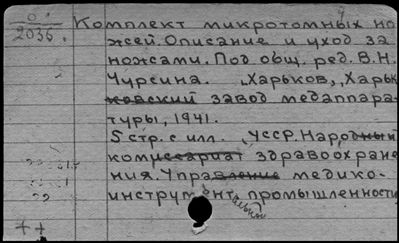 0
2036.
Комплект микротомных но
жей. Описание и уход за
ножами. Под общ. ред. В.Н.
Чурсина. Харьков, Харьк
овский завод медаппара-
туры, 1941.
5 стр. с илл. УССР. Народный
комиссариат здравоохране
ния. Управление медико-
инструментальной промышленности
++